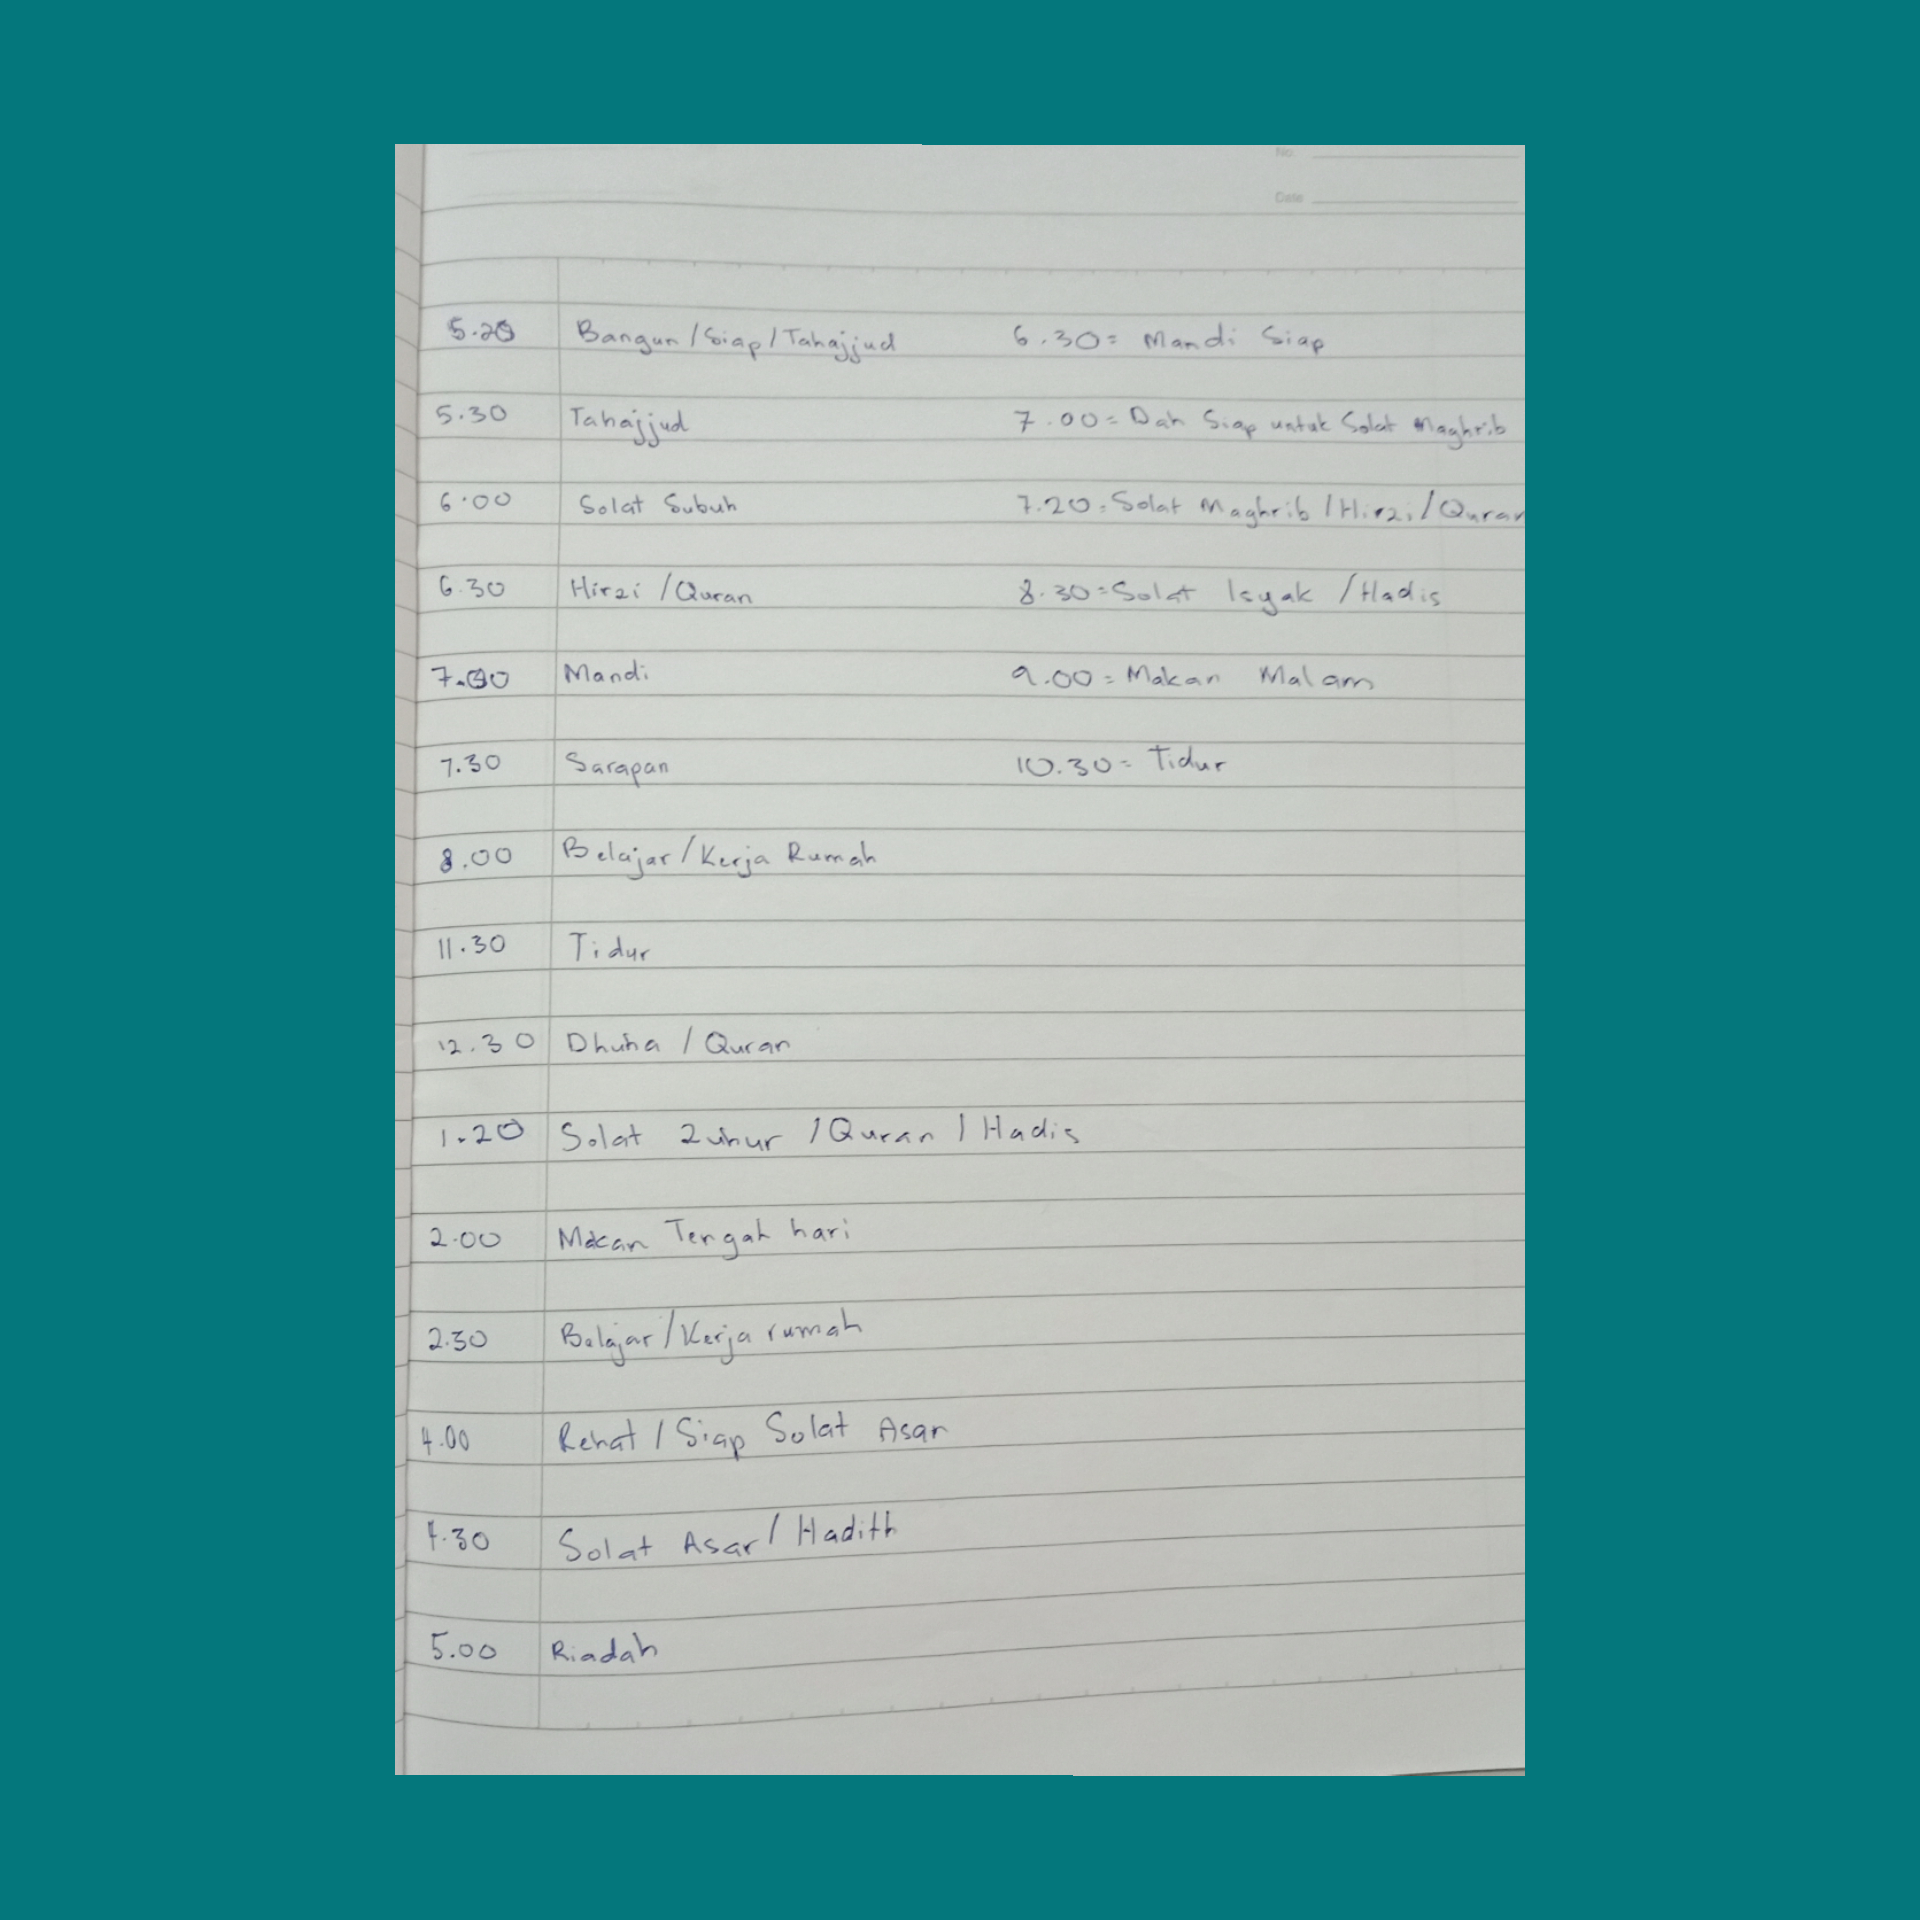 No.
Date
5.20 Bangun / Siap / Tahajjud
5.30 Tahajjud
6.00 Solat Subuh
6.30 Hirzi / Quran
7.00 Mandi
7.30 Sarapan
8.00 Belajar / Kerja Rumah
11.30 Tidur
12.30 Dhuha / Quran
1.20 Solat Zuhur / Quran / Hadis
2.00 Makan Tengah hari
2.30 Belajar / Kerja rumah
4.00 Rehat / Siap Solat Asar
4.30 Solat Asar / Hadith
5.00 Riadah
6.30 = Mandi Siap
7.00 = Dah Siap untuk Solat Maghrib
7.20 = Solat Maghrib / Hirzi / Quran
8.30 = Solat Isyak / Hadis
9.00 = Makan Malam
10.30 = Tidur